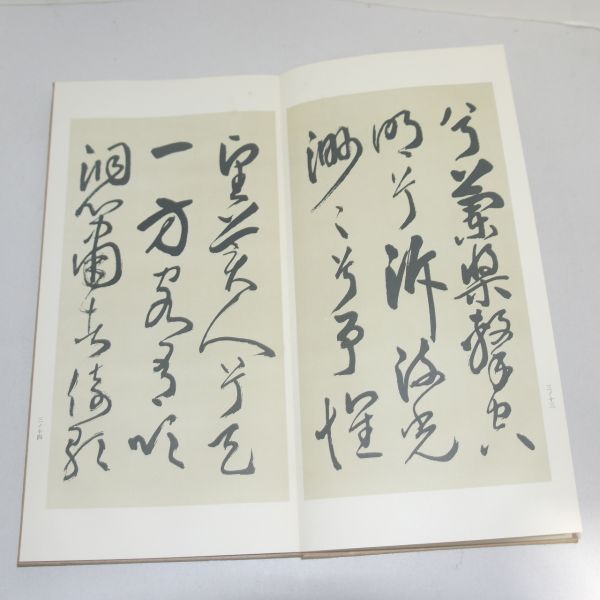 兮蘭槳擊空
明兮泝流光
渺〻兮予懷
三ノ十三
望美人兮天
一方客有吹
洞簫者倚歌
三ノ十四